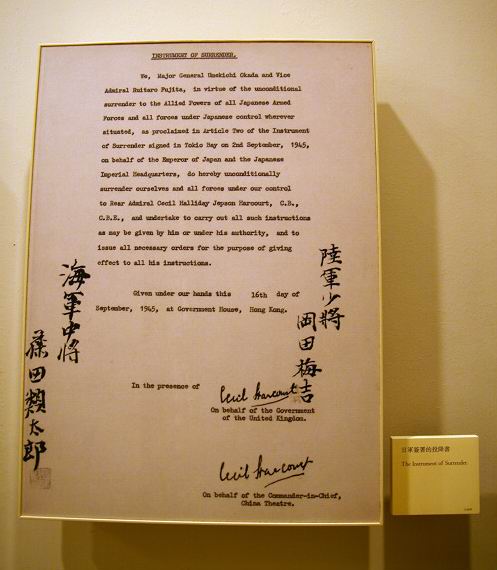 INSTRUMENT OF SURRENDER.
We, Major General Umekichi Okada and Vice
Admiral Ruitaro Fujita, in virtue of the unconditional
surrender to the Allied Powers of all Japanese Armed
Forces and all forces under Japanese control wherever
situated, as proclaimed in Article Two of the Instrument
of Surrender signed in Tokio Bay on 2nd September, 1945,
on behalf of the Emperor of Japan and the Japanese
Imperial Headquarters, do hereby unconditionally
surrender ourselves and all forces under our control
to Rear Admiral Cecil Halliday Jepson Harcourt, C.B.,
C.B.E., and undertake to carry out all such instructions
as may be given by him or under his authority, and to
issue all necessary orders for the purpose of giving
effect to all his instructions.
Given under our hands this 16th day of
September, 1945, at Government House, Hong Kong.
陸軍少将
岡田梅吉
海軍中将
藤田類太郎
In the presence of
Cecil Harcourt
On behalf of the Government
of the United Kingdom.
Cecil Harcourt
On behalf of the Commander-in-Chief,
China Theatre.
日軍簽署的投降書
The Instrument of Surrender.